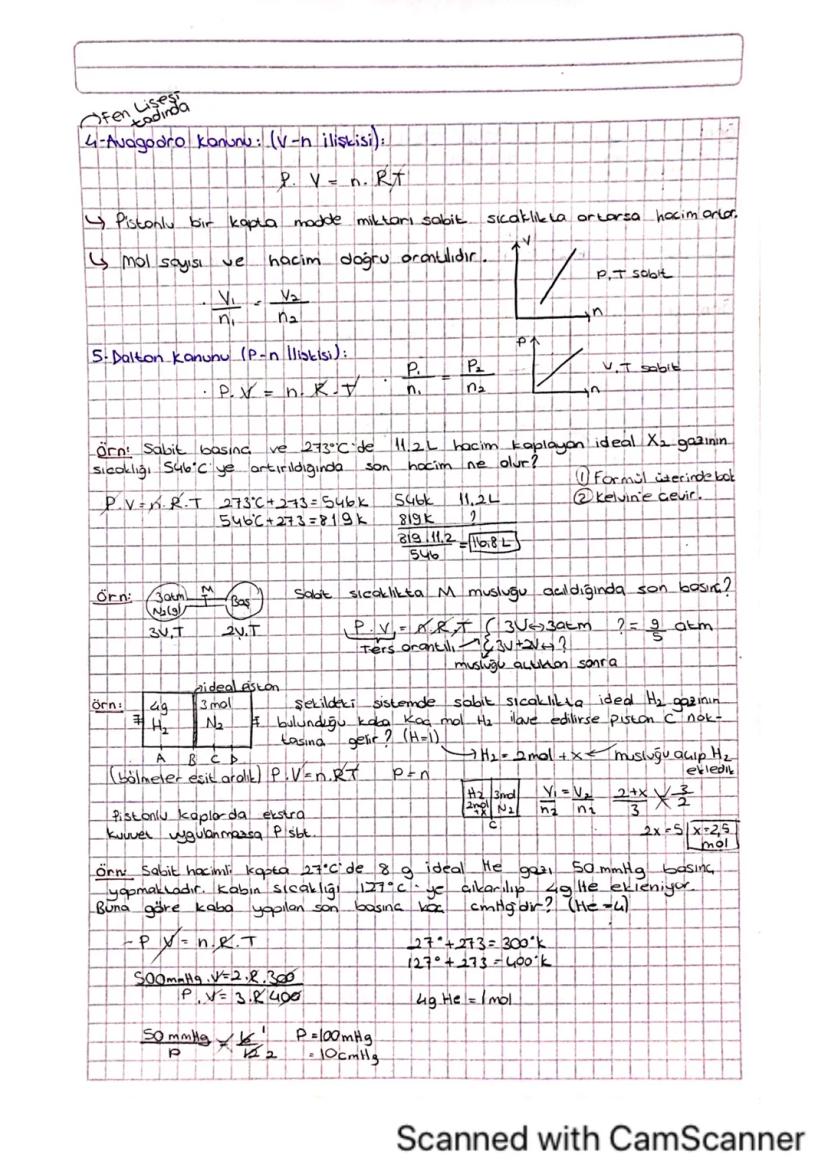 Fen Lisesi
tadında
4-Avagodro Kanunu: (V-n ilişkisi):
P. V = n. RT
↳ Pistonlu bir kapta madde miktarı sabit sıcaklıkta artarsa hacim artar.
↳ Mol sayısı ve hacim doğru orantılıdır.
V
n
P, T sabit
V₁/n₁ = V₂/n₂
5-Dalton Kanunu (P-n İlişkisi):
P
n
V, T sabit
· P. V = n. R. T
· P₁/n₁ = P₂/n₂
Örn: Sabit basınç ve 273°C'de 11.2L hacim kaplayan ideal X₂ gazının
sıcaklığı 546°C'ye artırıldığında son hacim ne olur?
① Formül üzerinde bak
② Kelvin'e çevir.
P.V=n.R.T 273°C+273=546K 546K 11,2L
546°C+273=819K 819K ?
819.11.2/546 = 16,8L
Örn: 3atm N₂(g) M Boş Sabit sıcaklıkta M musluğu açıldığında son basınç?
3V,T 2V,T
P.V = n.R.T { 3V↔3atm ?= 9/5 atm
Ters orantılı → { 3V+2V↔?
musluğu açtıktan sonra
ideal piston
Örn: 4g H₂ 3mol N₂ Şekildeki sistemde sabit sıcaklıkta ideal H₂ gazının
bulunduğu kaba kaç mol H₂ ilave edilirse piston C nok-
tasına gelir? (H=1)
A B C D
→ H₂ = 2mol + x ← musluğu açıp H₂
ekledik
(bölmeler eşit aralık) P.V=n.RT P-n
H₂ 2mol +x 3mol N₂
C
V₁/n₂ = V₂/n₂ 2+x/3 = 3/2
Pistonlu kaplarda ekstra
kuvvet uygulanmazsa P sbt.
2x=5 x=2,5
mol
Örn: Sabit hacimli kapta 27°C'de 8 g ideal He gazı 50mmHg basınç
yapmaktadır. Kabın sıcaklığı 127°C-ye çıkarılıp 4g He ekleniyor.
Buna göre kaba yapılan son basınç kaç cmHg'dir? (He=4)
-P V = n.R.T
27°+273= 300°K
127°+273=400°K
500mmHg.V=2.R.300
P.V=3.R 400
4g He = 1mol
50 mmHg/P = 6 1/12 2
P=100mHg
= 10cmHg
Scanned with CamScanner